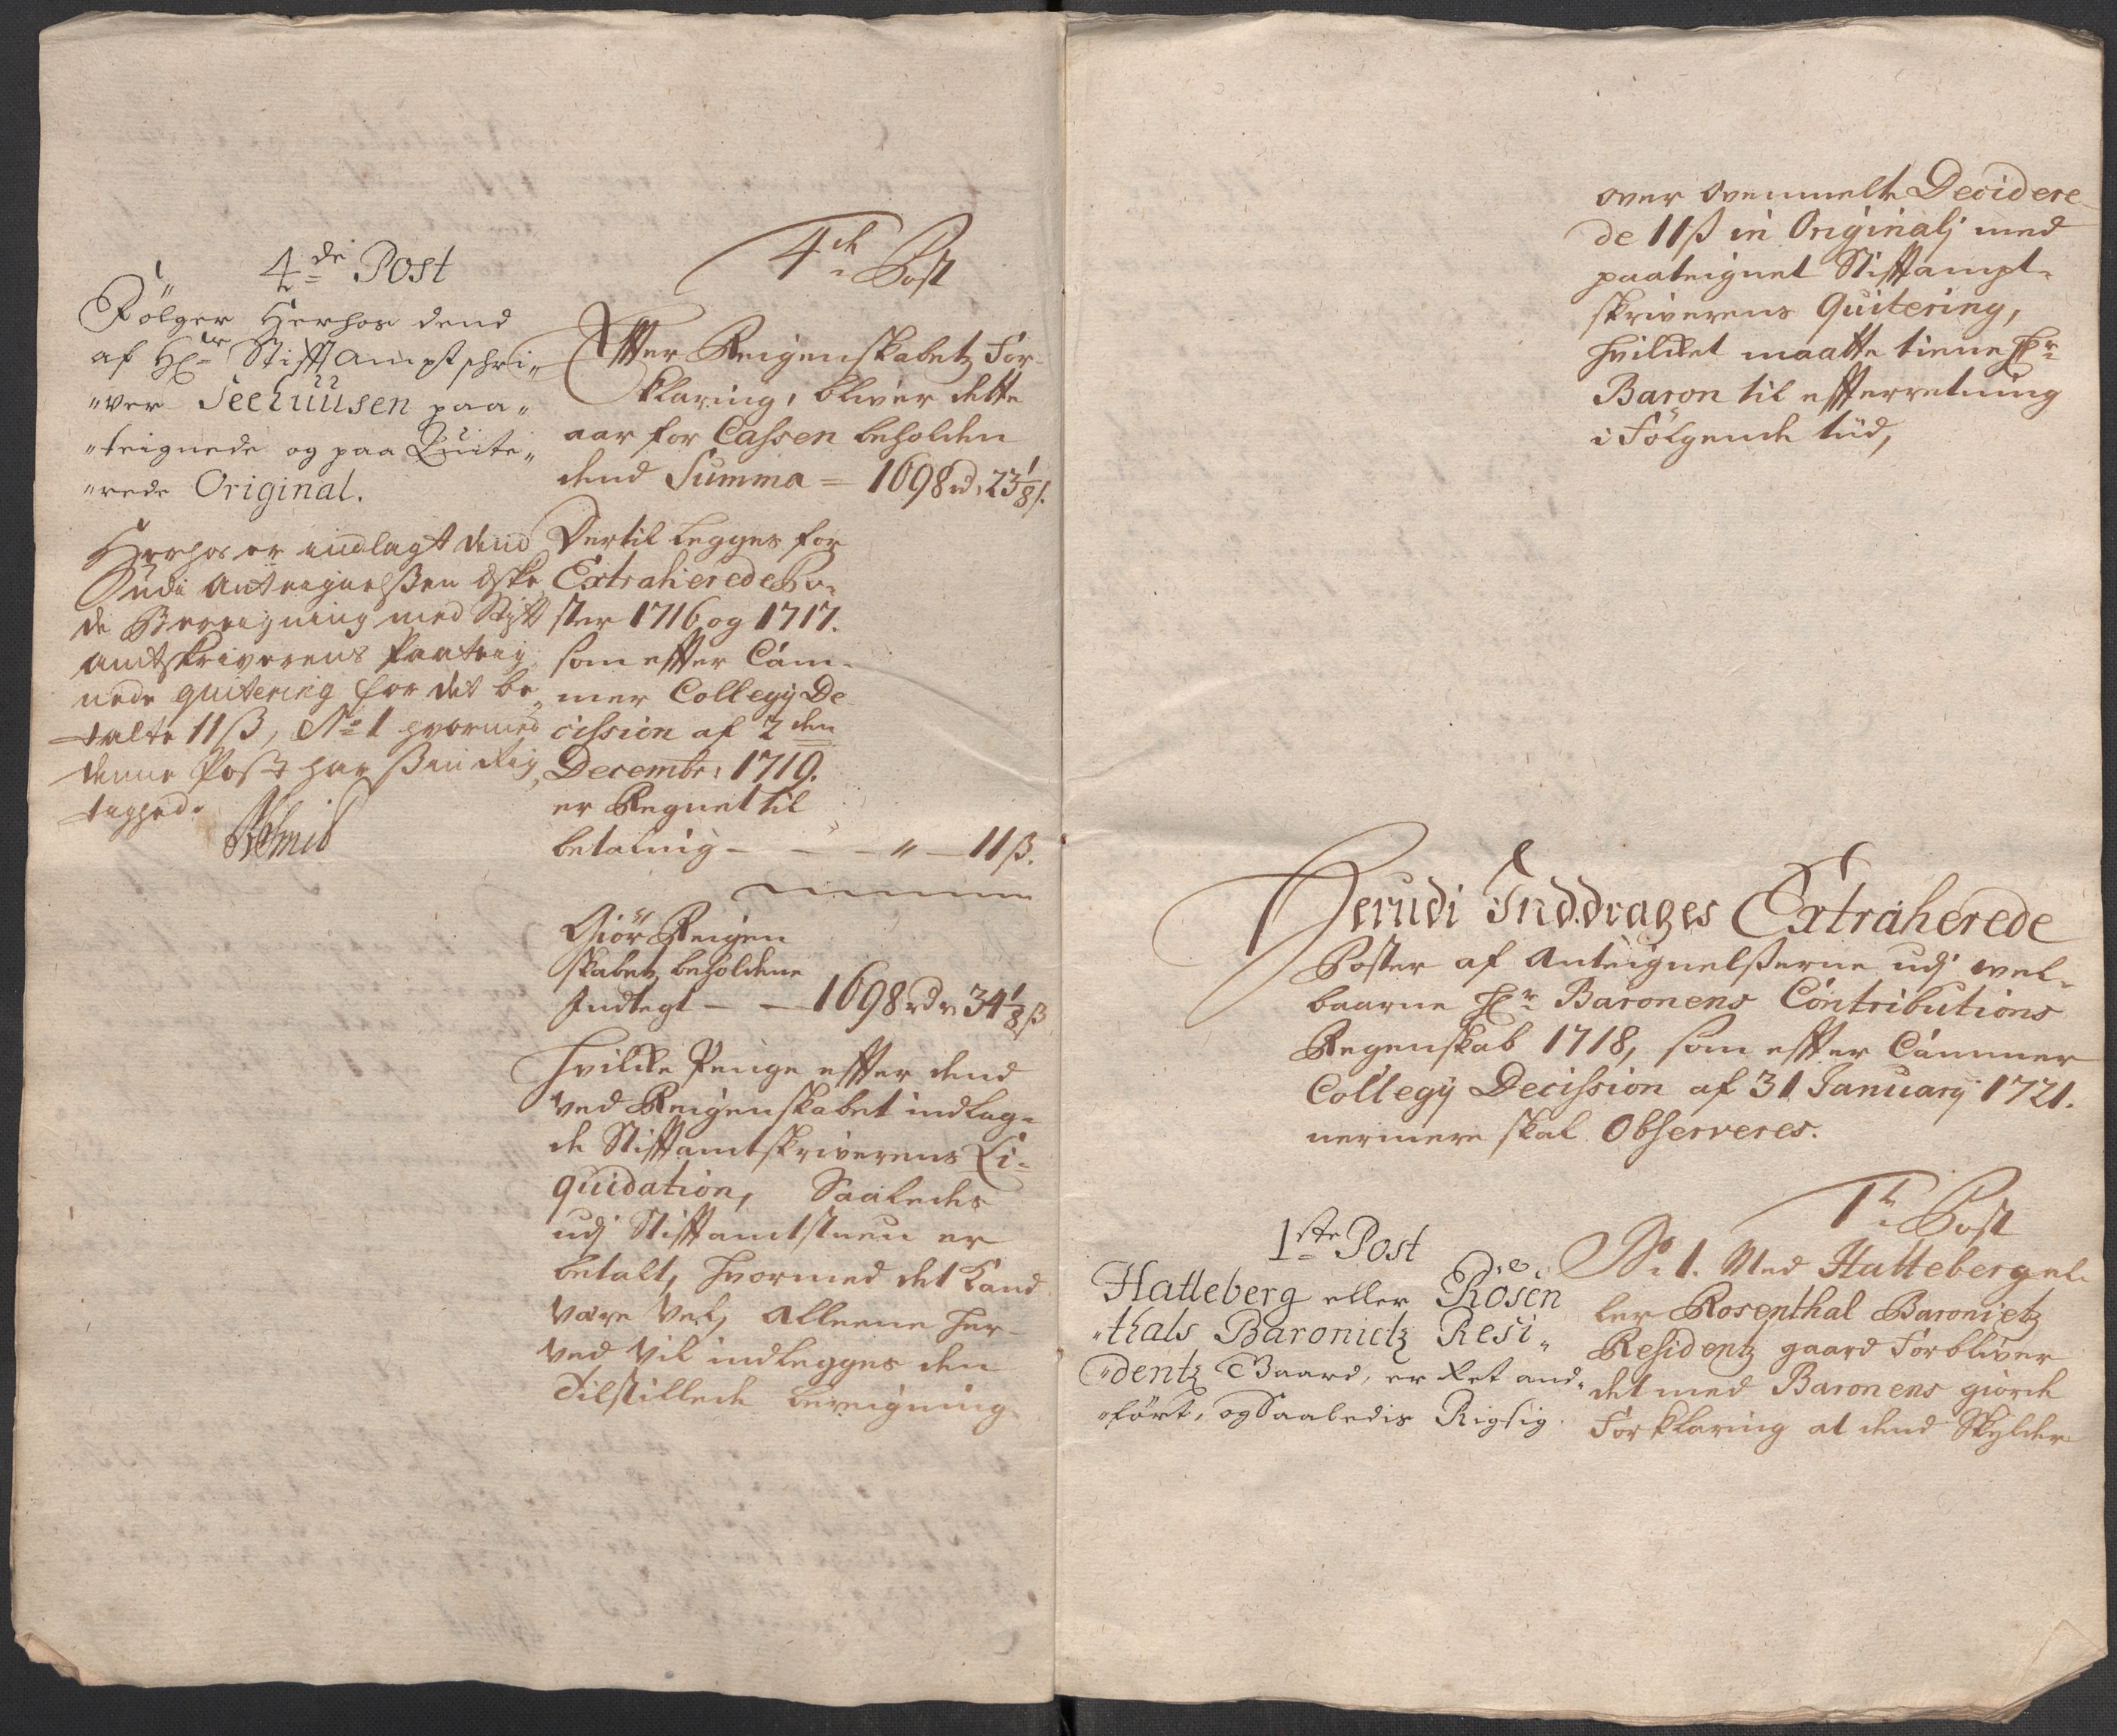 4de Post
Fölger Herhos dend
af Hr Stifft Amptschri„
„ver Seehuusen paa„
„teignede og paa Quite„
„rede Original.
Herhos er indlagt dend
udi Antegnelßen
de Bereigning med Stift
amtskriverens Paateig
nede quitering for det be„
talte 11 ß, No 1 hvormed
denne Post har sin Rig„
tighed.
4de Post
Effter Reigenskabetz For„
klaring, bliver dette
aar for Cassen beholden
dend Summa = 1698 rd. 23 1/8 ß.
Dertil legges for
Extraherede Po„
ster 1716 og 1717.
som effter Cam„
mer Collegij De
cission af 2den
Decembr: 1719.
er Regnet til
betaling - - - „ - 11 ß.
Giör Reigen
skabetz beholdene
Indtegt - - 1698 rdr 34 1/8 ß
Hvilcke Penge effter dend
ved Reigenskabet indlag„
de Stifftamtskriverens Li„
quidation, Saaledes
udj Stifftamtstuen er
betalt, hvormed det kand
være vel, alleene her„
ved vil indlegges den
Tilstillede bereigning
over ovenmelte Decidere
de 11 ß in Originalj med
paateignet Stifftampt„
skriverens Quitering,
hvilcket maatte tiene Hr
Baron til effterretning
i Fölgende tiid,
Herudi Inddrages Extraherede
Poster af Anteignelßerne udj wel„
baarne Hr Baronens Contributions
Regenskab 1718, som effter Cammer
Collegij Decission af 31 Januarij 1721.
nermere skal Observeres.
1ste Post
Hatteberg eller Rosen
„thals Baronietz Resi„
„dentz Gaard, er Ret and„
„fört, og Saaledis Rigtig.
1te Post
No 1. Med Hatteberg el„
ler Rosenthal Baronietz
Residentz gaard Forbliver
det med Baronens giorde
Forklaring at dend Skylder